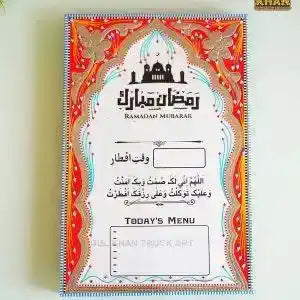 KHAN
رمضان مبارك
RAMADAN MUBARAK
وقتِ افطار
اَللّٰهُمَّ اِنِّی لَکَ صُمْتُ وَبِکَ اٰمَنْتُ
وَعَلَیْکَ تَوَکَّلْتُ وَعَلٰی رِزْقِکَ اَفْطَرْتُ
TODAY'S MENU
KHAN TRUCK ART